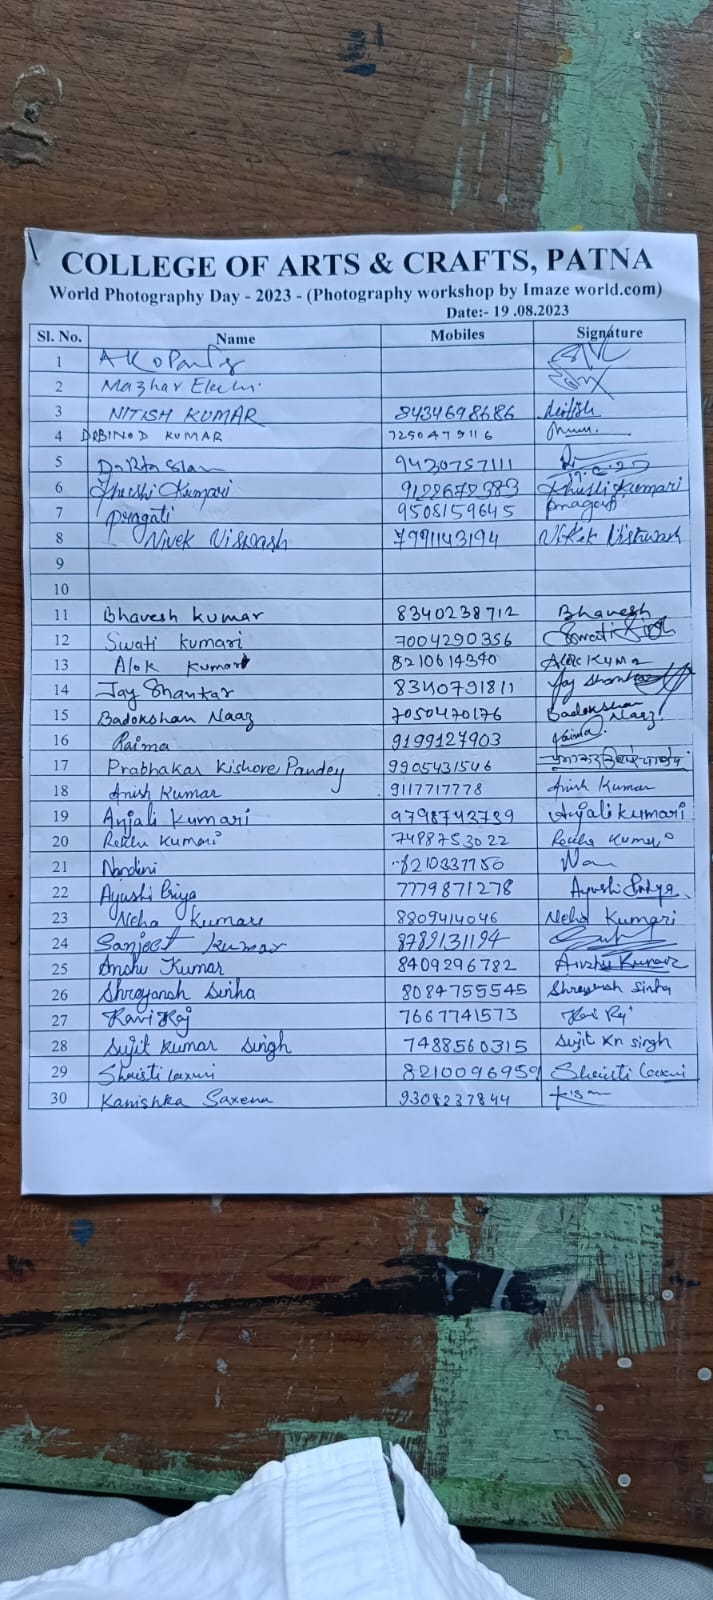 COLLEGE OF ARTS & CRAFTS, PATNA
World Photography Day - 2023 - (Photography workshop by Imaze world.com)
Date:- 19 .08.2023
Sl. No. Name Mobiles Signature
1
2 Mazhar
3 NITISH KUMAR 8434698686 Nitish
4 DR BINOD KUMAR 7250479116
5 9430757111
6 Khushi Kumari 9122672383 Khushi Kumari
7 pragati 9508159645 pragati
8 Vivek Viswash 7991143194
9
10
11 Bhavesh kumar 8340238712 Bhavesh
12 Swati kumari 7004290356 Swati
13 Alok Kumar 8210614340 Alok Kumar
14 Jay Shankar 8340791811 Jay Shankar
15 Badakshan Naaz 7050470176 Badakshan Naaz
16 Raima 9199127903 Raima
17 Prabhakar Kishore Pandey 9905431546
18 Anish Kumar 9117717778 Anish Kumar
19 Anjali Kumari 9798743739 Anjali kumari
20 Kumari 7488753022
21 Nandini 8210337750
22 Ayushi Priya 7779871278 Ayushi Priya
23 Neha Kumari 8809414046 Neha Kumari
24 Sanjeet kumar 8789131194
25 Anshu Kumar 8409296782 Anshu Kumar
26 Shreyansh Sinha 8084755545 Shreyansh Sinha
27 Ravi Raj 7667741573 Ravi Raj
28 Sujit Kumar Singh 7488560315 Sujit Kr singh
29 Shristi laxmi 8210096959 Shristi laxmi
30 Kanishka Saxena 9308237844